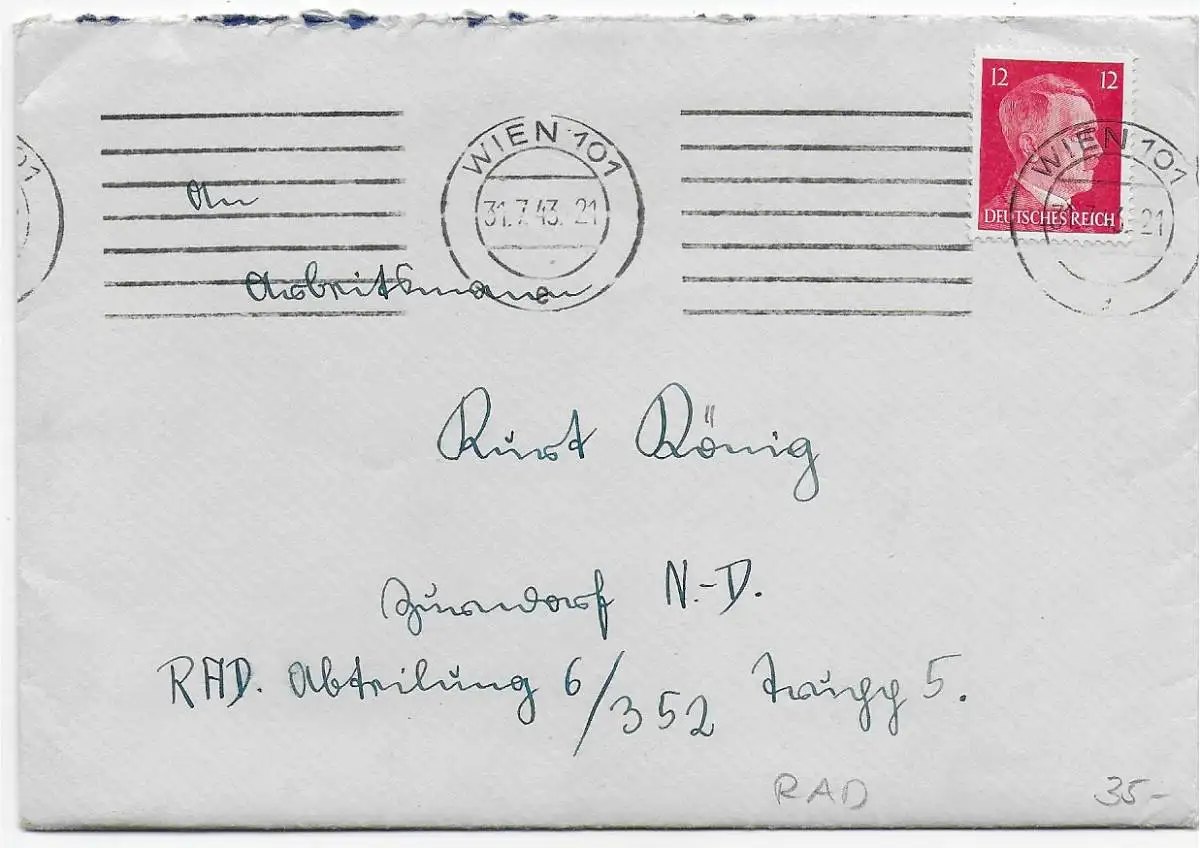 12 12
DEUTSCHES REICH
WIEN 101
31.7.43. 21
WIEN 101
21
101
An
Arbeitsmann
Kurt König
Zurndorf N.-D.
RAD. Abteilung 6/352 5.
RAD 35-